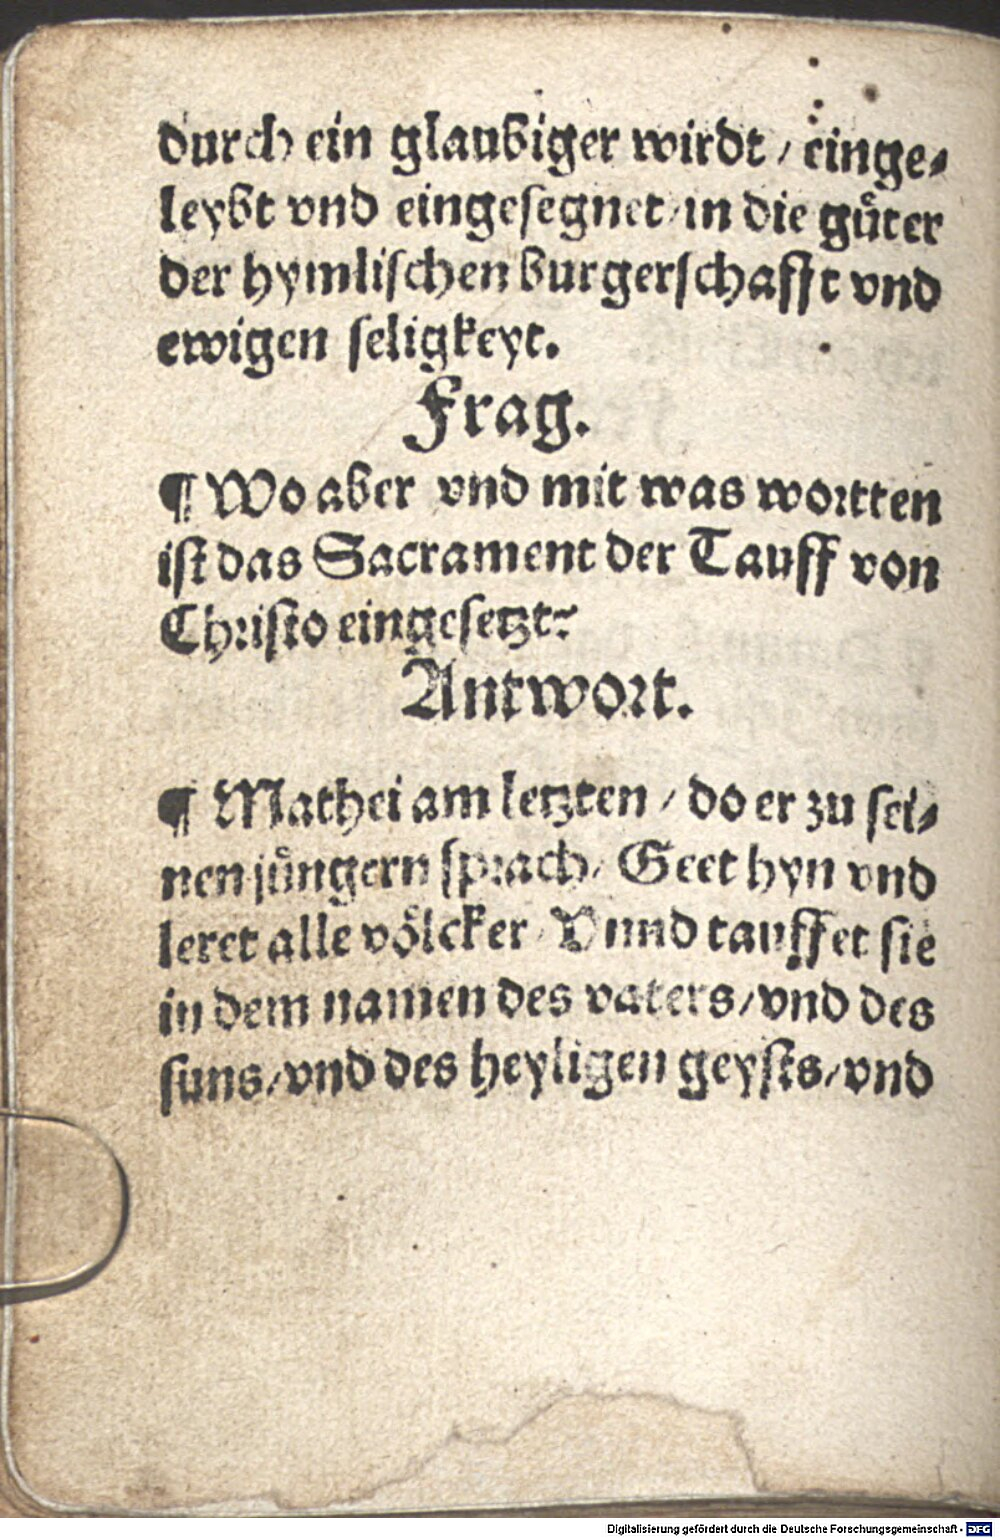 durch ein glaubiger wirdt / einge⸗
leybt vnd eingesegnet / in die gu̍ter
der hymlischen burgerschafft vnd
ewigen seligkeyt.
Frag.
¶ Wo aber vnd mit was wortten
ist das Sacrament der Tauff von
Christo eingesetzt?
Antwort.
¶ Mathei am letzten / do er zu sei⸗
nen jüngern sprach / Geet hyn vnd
leret alle völcker / Vnnd tauffet sie
in dem namen des vaters / vnd des
suns / vnd des heyligen geysts / vnd
Digitalisierung gefördert durch die Deutsche Forschungsgemeinschaft - DFG